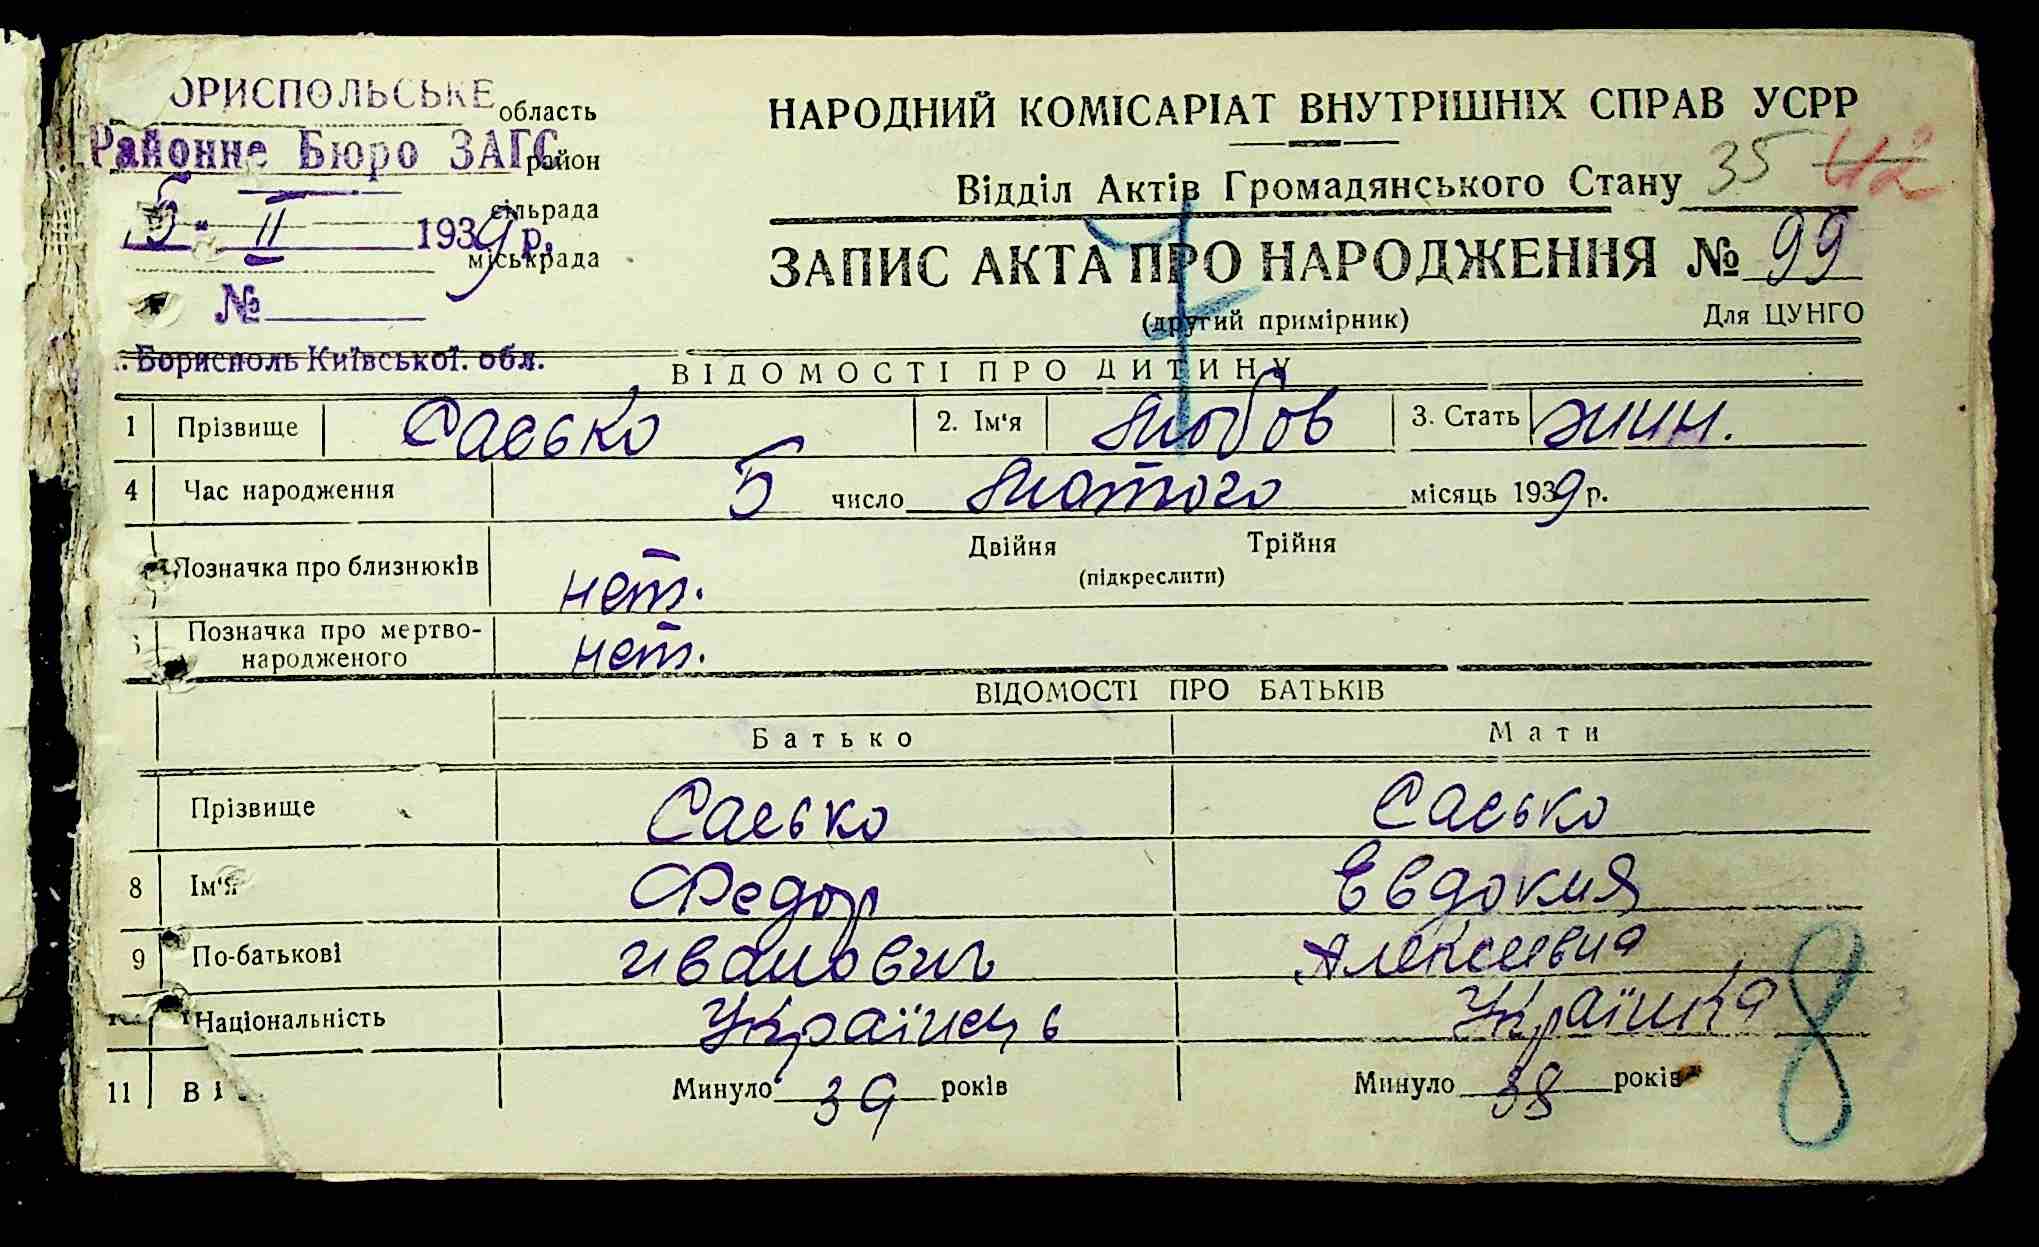 ОРИСПОЛЬСЬКЕ область
Районне Бюро ЗАГС район
сільрада
5 - II 1939 р.
міськрада
№
Бориспoль Київської. обл.
НАРОДНИЙ КОМІСАРІАТ ВНУТРІШНІХ СПРАВ УСРР
Відділ Актів Громадянського Стану 35 42
ЗАПИС АКТА ПРО НАРОДЖЕННЯ № 99
(другий примірник) Для ЦУНГО
7
ВІДОМОСТІ ПРО ДИТИНУ
1 Прізвище Сасько 2. Ім'я Любов 3. Стать жин.
4 Час народження 5 число Лютого місяць 1939 р.
Позначка про близнюків нет. Двійня Трійня
(підкреслити)
Позначка про мертво-
народженого нет.
ВІДОМОСТІ ПРО БАТЬКІВ
Батько Мати
Прізвище Сасько Сасько
8 Ім'я Федор Евдокия
9 По-батькові Иванович Алексеевна
Національність Українець Українка
11 ВІ Минуло 39 років Минуло 38 років
8